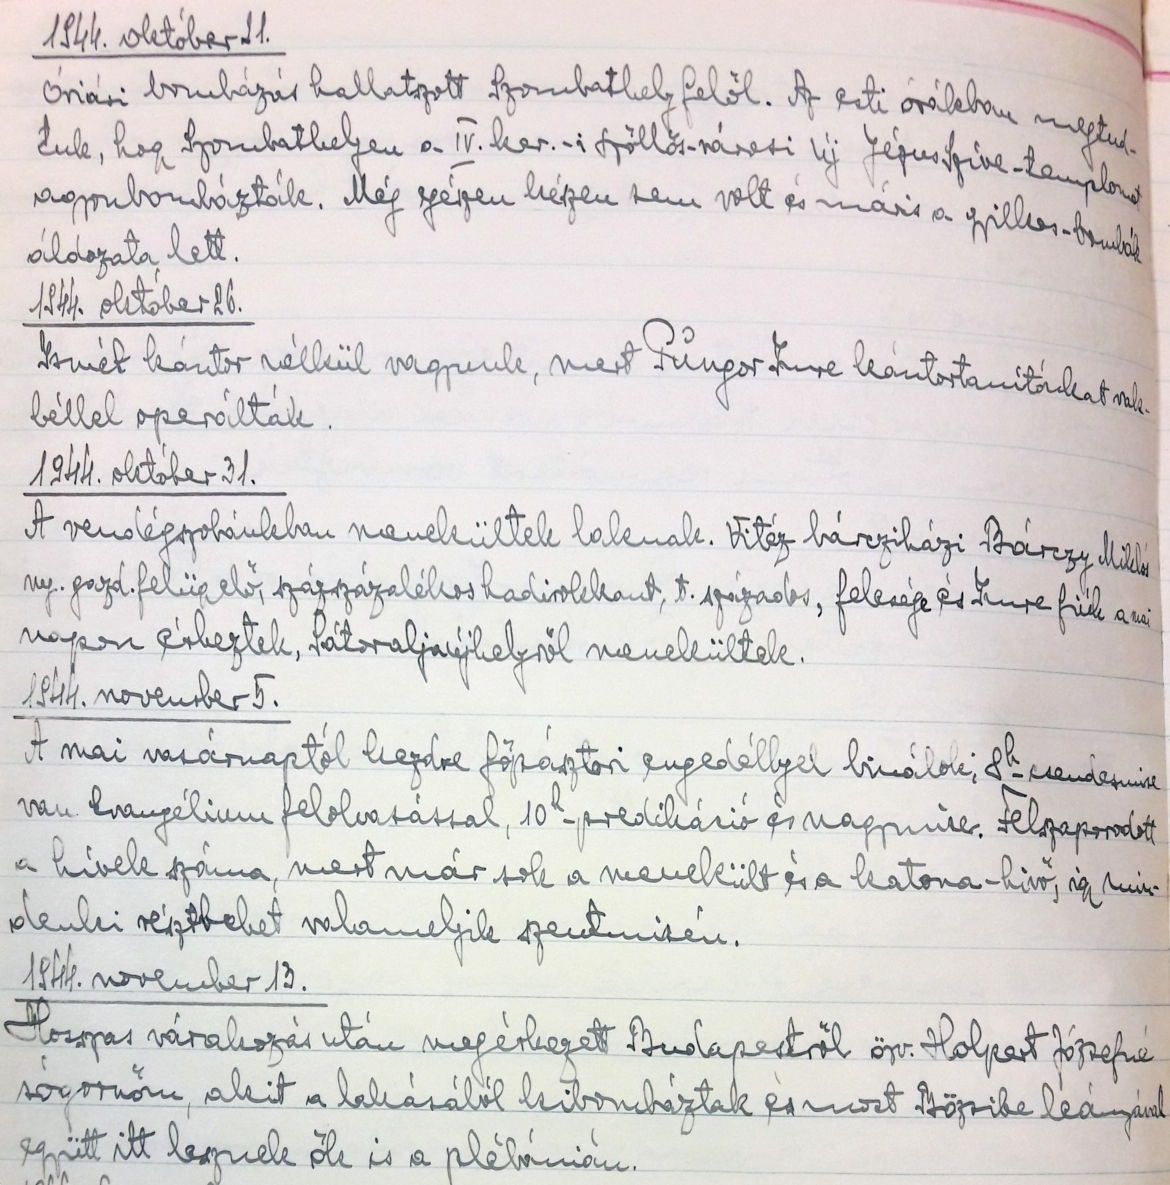 1944. október 21.
Óriási bombázás hallatszott Szombathely felől. Az esti órákban megtud-
tuk, hogy Szombathelyen a IV. ker.-i Szőllős-városi új Jézus Szíve-templomot
agyonbombázták. Még egészen készen sem volt és máris a gyilkos-bombák
áldozata lett.
1944. október 26.
Ismét kántor nélkül vagyunk, mert Püngor Imre kántortanítónkat vak-
béllel operálták.
1944. október 31.
A vendégszobánkban menekültek laknak. Vitéz bárcziházi Bárczy Miklós
ny. gazd. felügyelő, százszázalékos hadirokkant, t. százados, felesége és Imre fiuk a mai
napon érkeztek, Sátoraljaújhelyről menekültek.
1944. november 5.
A mai vasárnaptól kezdve főpásztori engedéllyel binálok; 8h-csendesmise
van Evangélium felolvasással, 10h-predikáció és nagymise. Felszaporodott
a hívek száma, mert már sok a menekült és a katona-hívő, így min-
denki résztvehet valamelyik szentmisén.
1944. november 13.
Hosszas várakozás után megérkezett Budapestről özv. Holpert Józsefné
sógornőm, akit a lakásából kibombáztak és most Bözsike leányával
együtt itt lesznek ők is a plébánián.